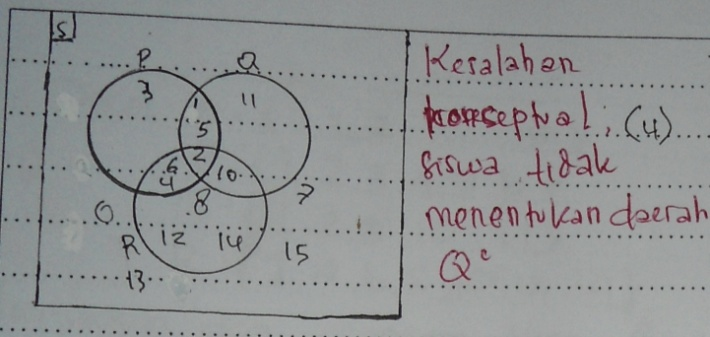 S
P Q
3 1 11
5
2
6 10
4
8 7
0
R 12 14 15
13
Kesalahan
konseptual, (4)
siswa tidak
menentukan daerah
Qᶜ